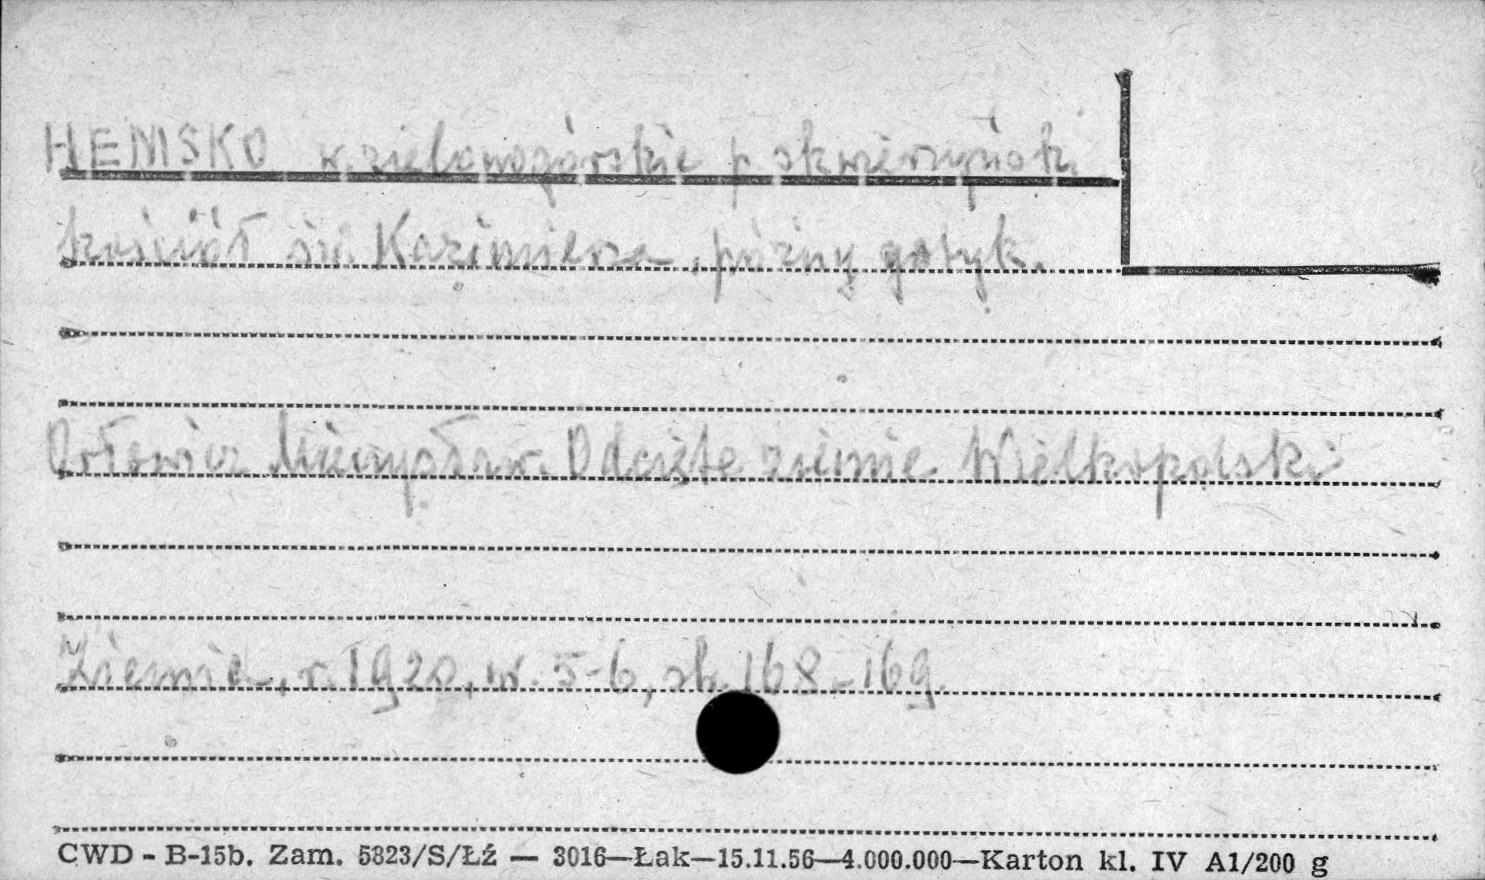 HEMSKO w. zielonogórskie p. skwierzyński
kościół św. Kazimierza, późny gotyk.
Orłowicz Mieczysław. Odcięte ziemie Wielkopolski
Ziemia, r. 1920, nr. 5-6, str. 168-169.
CWD - B-15b. Zam. 5823/S/Łź — 3016—Łak—15.11.56—4.000.000—Karton kl. IV A1/200 g